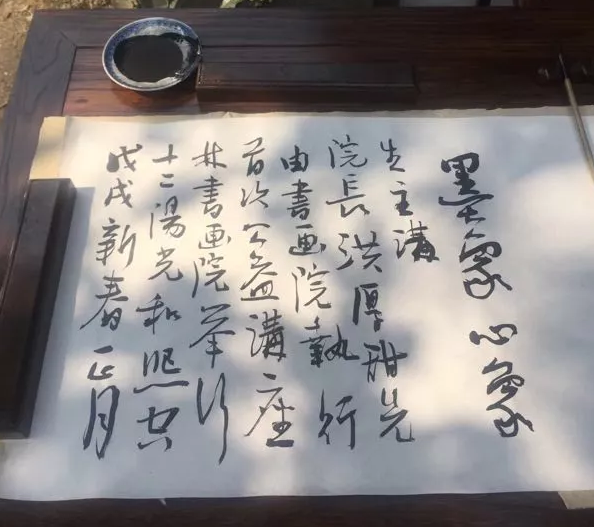 墨象心象
戊戌新春正月
十二陽光和煦空
林書画院举行
首次公益講座
由書画院執行
院長洪厚甜先
生主講